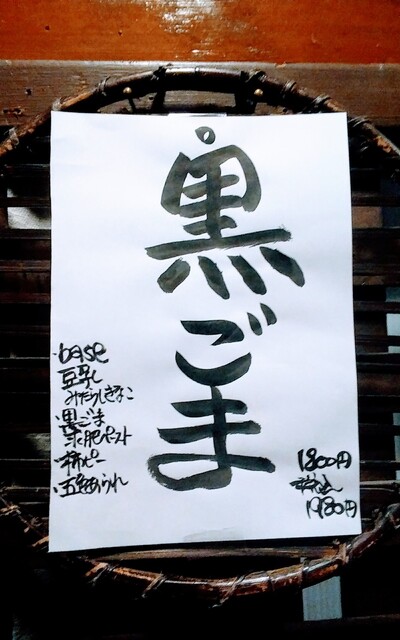 黒ごま
・base
豆乳
みたらしきなこ
・黒ごま
求肥ペースト
・柿ピー
・五色あられ
1800円
税込
1980円